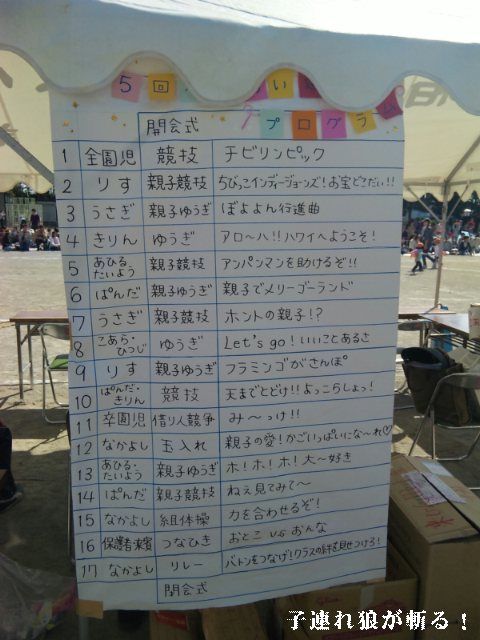 5回
プログラム
開会式
1 全園児 競技 チビリンピック
2 りす 親子競技 ちびっこインディージョーンズ!お宝どこだい!!
3 うさぎ 親子ゆうぎ ぼよよん行進曲
4 きりん ゆうぎ アロ〜ハ!!ハワイへようこそ!
5 あひる・たいよう 親子競技 アンパンマンを助けるぞ!!
6 ぱんだ 親子ゆうぎ 親子でメリーゴーランド
7 うさぎ 親子競技 ホントの親子!?
8 こあら・ひつじ ゆうぎ Let's go!いいことあるさ
9 りす 親子ゆうぎ フラミンゴがさんぽ
10 ぱんだ・きりん 競技 天までとどけ!!よっこらしょっ!
11 卒園児 借り人競争 み〜っけ!!
12 なかよし 玉入れ 親子の愛!かごいっぱいにな〜れ♡
13 あひる・たいよう 親子ゆうぎ ホ!ホ!ホ!大〜好き
14 ぱんだ 親子競技 ねぇ見てみて〜
15 なかよし 組体操 力を合わせるぞ!
16 保護者・来賓 つなひき おとこ vs おんな
17 なかよし リレー バトンをつなげ!クラスの絆を見せつけろ!
閉会式
子連れ狼が斬る!